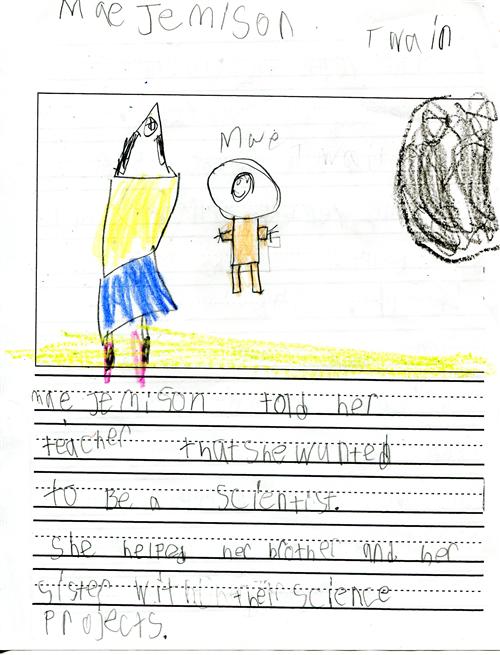 Mae Jemison
Twain
Mae
Mae Jemison told her
teacher that she wanted
to Be a scientist.
She helped her brother and her
sister with their science
projects.